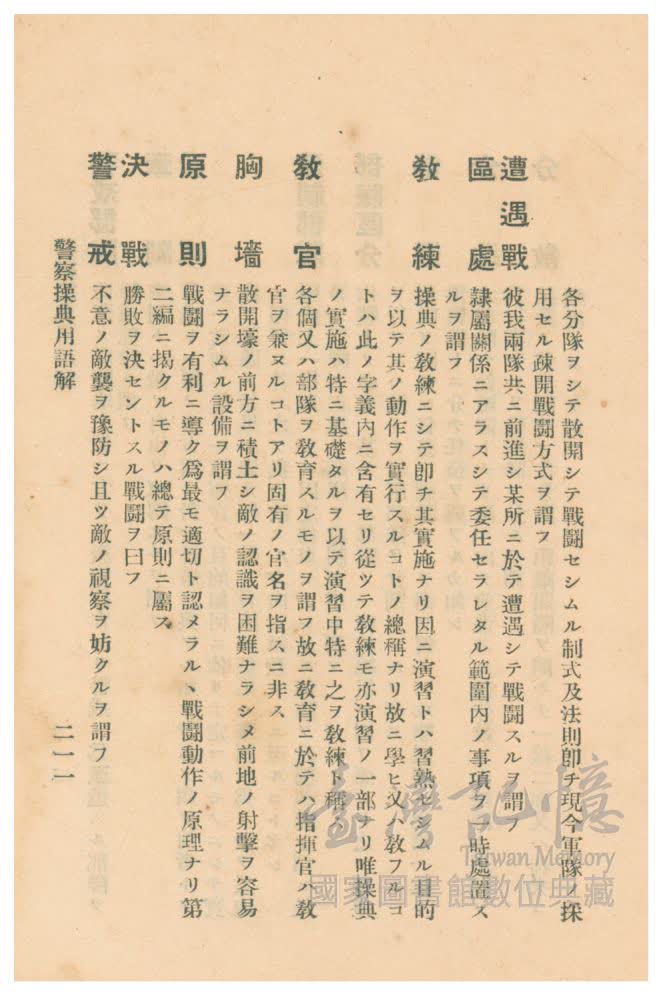 各分隊ヲシテ散開シテ戰鬪セシムル制式及法則卽チ現今軍隊ノ採
用セル疎開戰鬪方式ヲ謂フ
遭遇戰 彼我兩隊共ニ前進シ某所ニ於テ遭遇シテ戰鬪スルヲ謂フ
區處 隸屬關係ニアラスシテ委任セラレタル範圍內ノ事項ヲ一時處置ス
ルヲ謂フ
敎練 操典ノ敎練ニシテ卽チ其實施ナリ因ニ演習トハ習熟セシムル目的
ヲ以テ其ノ動作ヲ實行スルコトノ總稱ナリ故ニ學ヒ又ハ敎フルコ
トハ此ノ字義內ニ含有セリ從ツテ敎練モ亦演習ノ一部ナリ唯操典
ノ實施ハ特ニ基礎タルヲ以テ演習中特ニ之ヲ敎練ト稱ス
敎官 各個又ハ部隊ヲ敎育スルモノヲ謂フ故ニ敎育ニ於テハ指揮官ハ敎
官ヲ兼ヌルコトアリ固有ノ官名ヲ指スニ非ス
胸墻 散開壕ノ前方ニ積土シ敵ノ認識ヲ困難ナラシメ前地ノ射擊ヲ容易
ナラシムル設備ヲ謂フ
原則 戰鬪ヲ有利ニ導ク爲最モ適切ト認メラルヽ戰鬪動作ノ原理ナリ第
二編ニ揭クルモノハ總テ原則ニ屬ス
決戰 勝敗ヲ決セントスル戰鬪ヲ曰フ
警戒 不意ノ敵襲ヲ豫防シ且ツ敵ノ視察ヲ妨クルヲ謂フ
警察操典用語解
二一一
臺灣記憶
Taiwan Memory
國家圖書館數位典藏